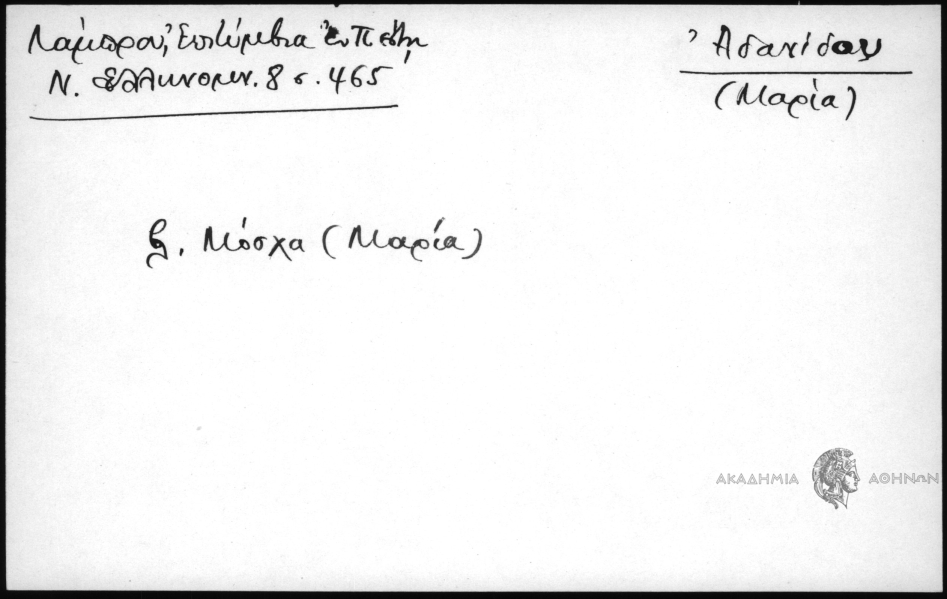 Λάμπρου, Ἐπιτύμβια ἐν Πέστῃ
Ν. Ἑλληνομν. 8 σ. 465
Ἀδανίδου
(Μαρία)
β. Μόσχα (Μαρία)
ΑΚΑΔΗΜΙΑ ΑΘΗΝΩΝ